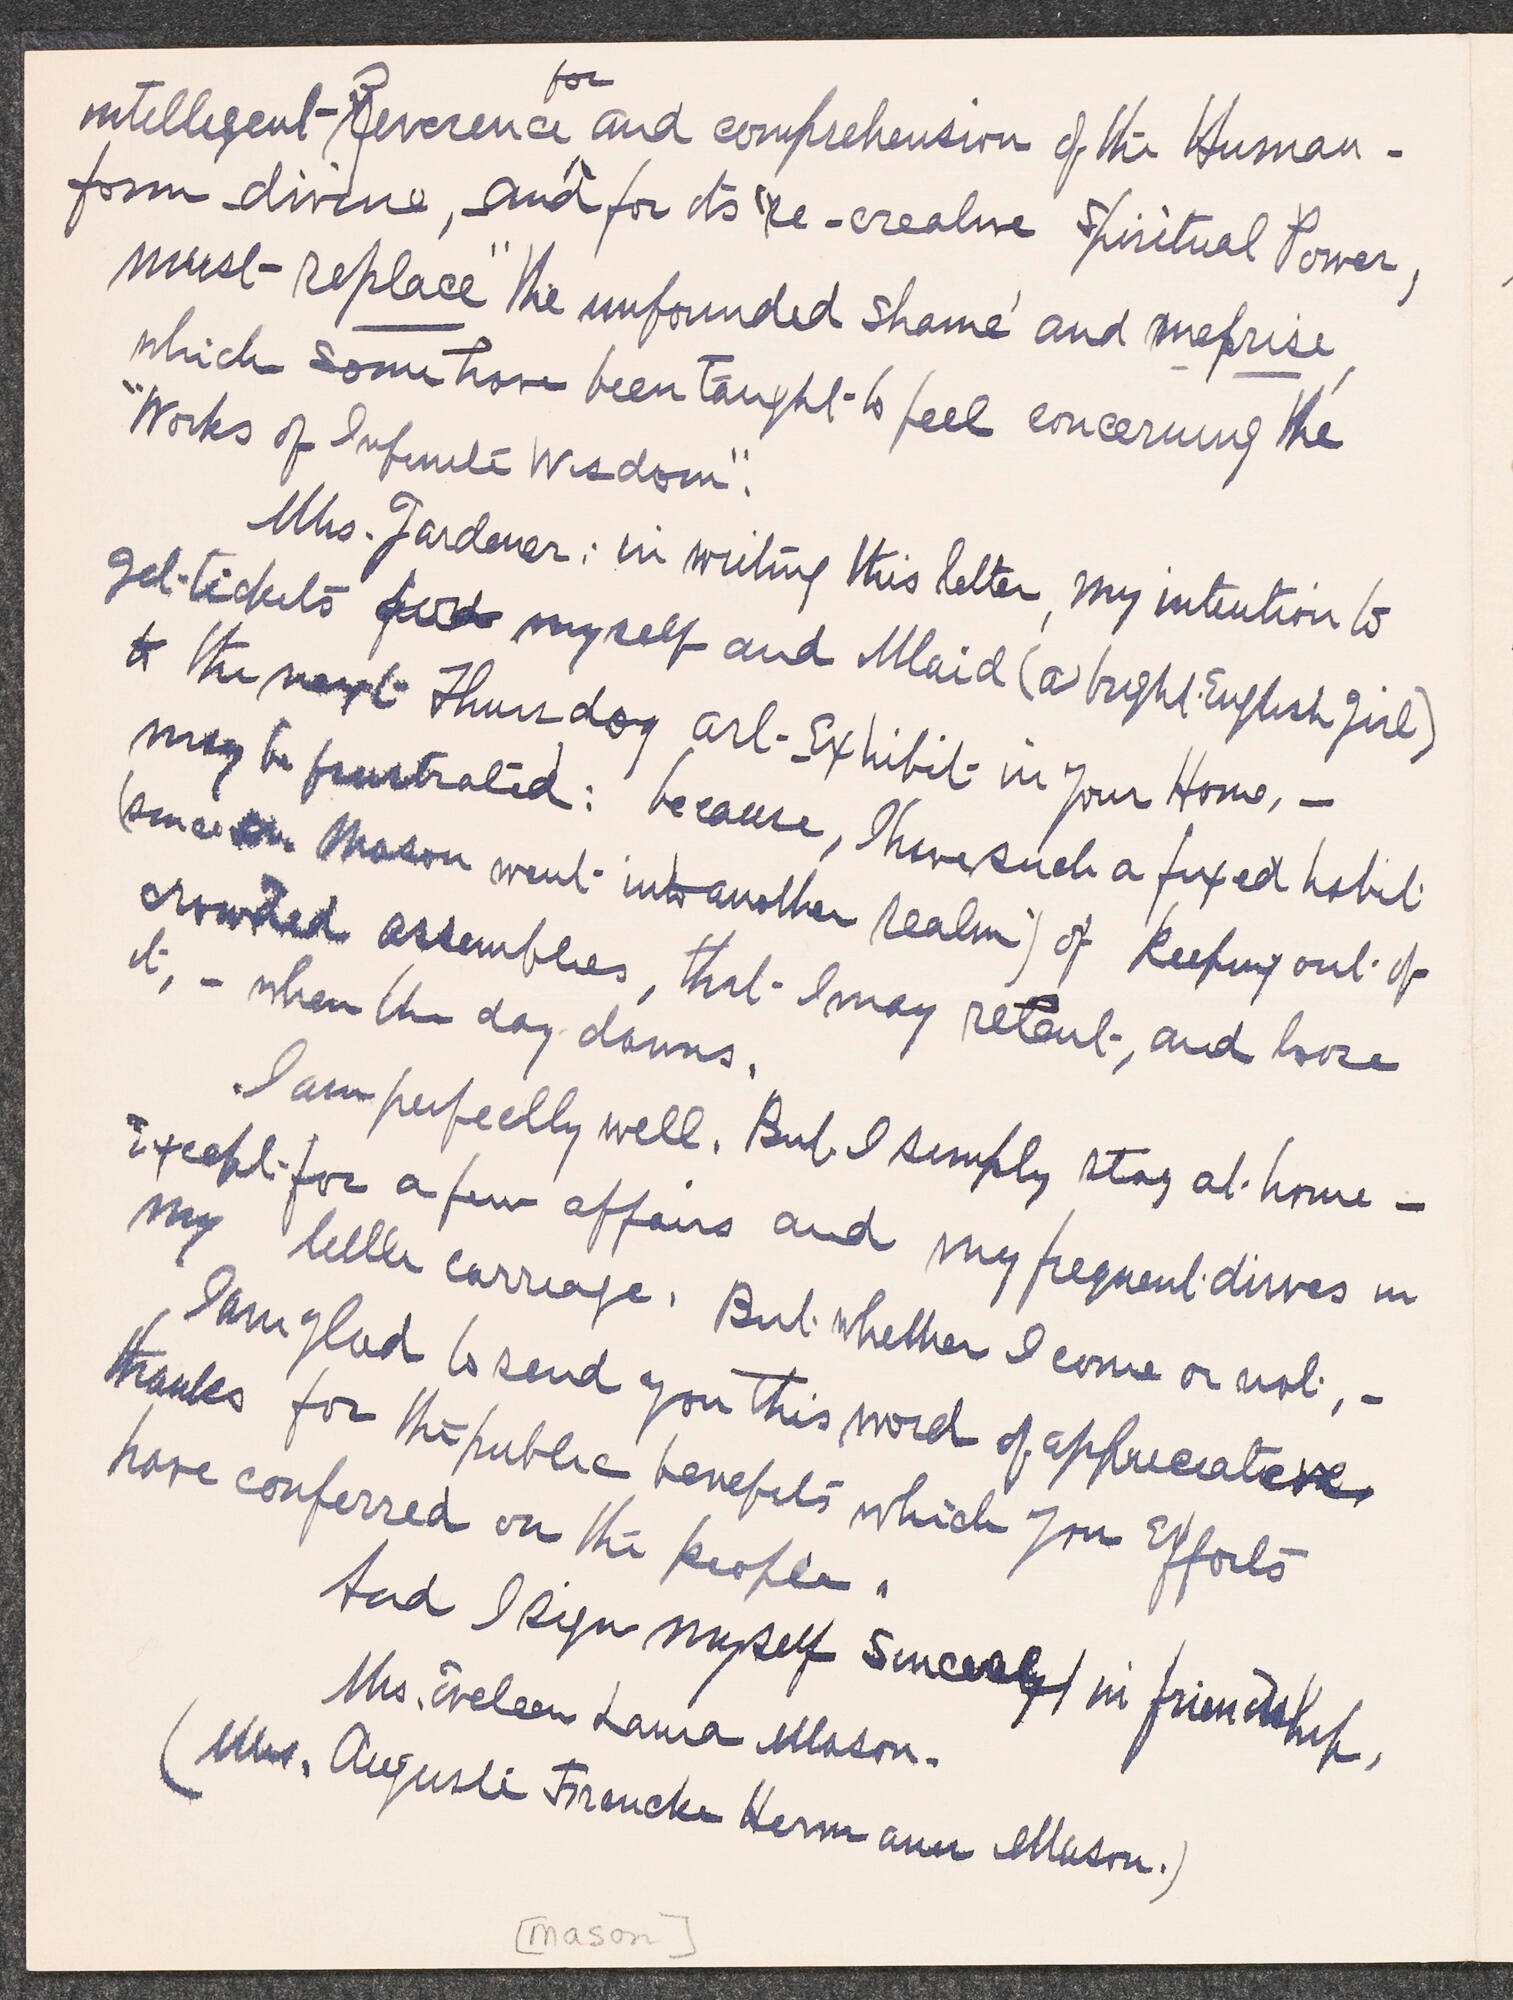 intellegent Reverence for and comprehension of the Human -
form divine, and for its "re-creative Spiritual Power,
must replace" the unfounded shame and meprise,
which some have been taught to feel concerning the
"Works of Infinite Wisdom".
Mrs. Gardener: in writing this letter, my intention to
get tickets for myself and Maid (a bright English girl)
to the next Thursday art-Exhibit in your Home, -
may be frustrated: because, I have such a fixed habit
(since Mr. Mason went into another realm) of keeping out of
crowded assemblies, that I may retent, and loose
it, - when the day dawns.
I am perfectly well. But I simply stay at home -
except for a few affairs and my frequent drives in
my little carriage. But whether I come or not, -
I am glad to send you this word of appreciative
thanks for the public benefits which you Efforts
have conferred on the people.
And I sign myself Sincerely in friendship,
Mrs. Eveleen Laura Mason.
(Mrs. Auguste Francke Hermann Mason.)
[Mason]